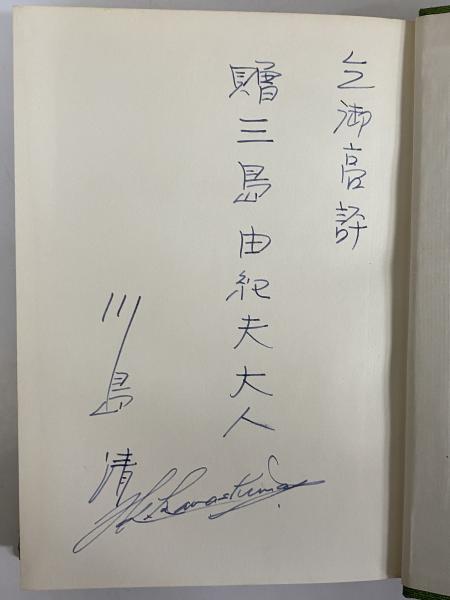 乞御高評
贈三島由紀夫大人
川島清